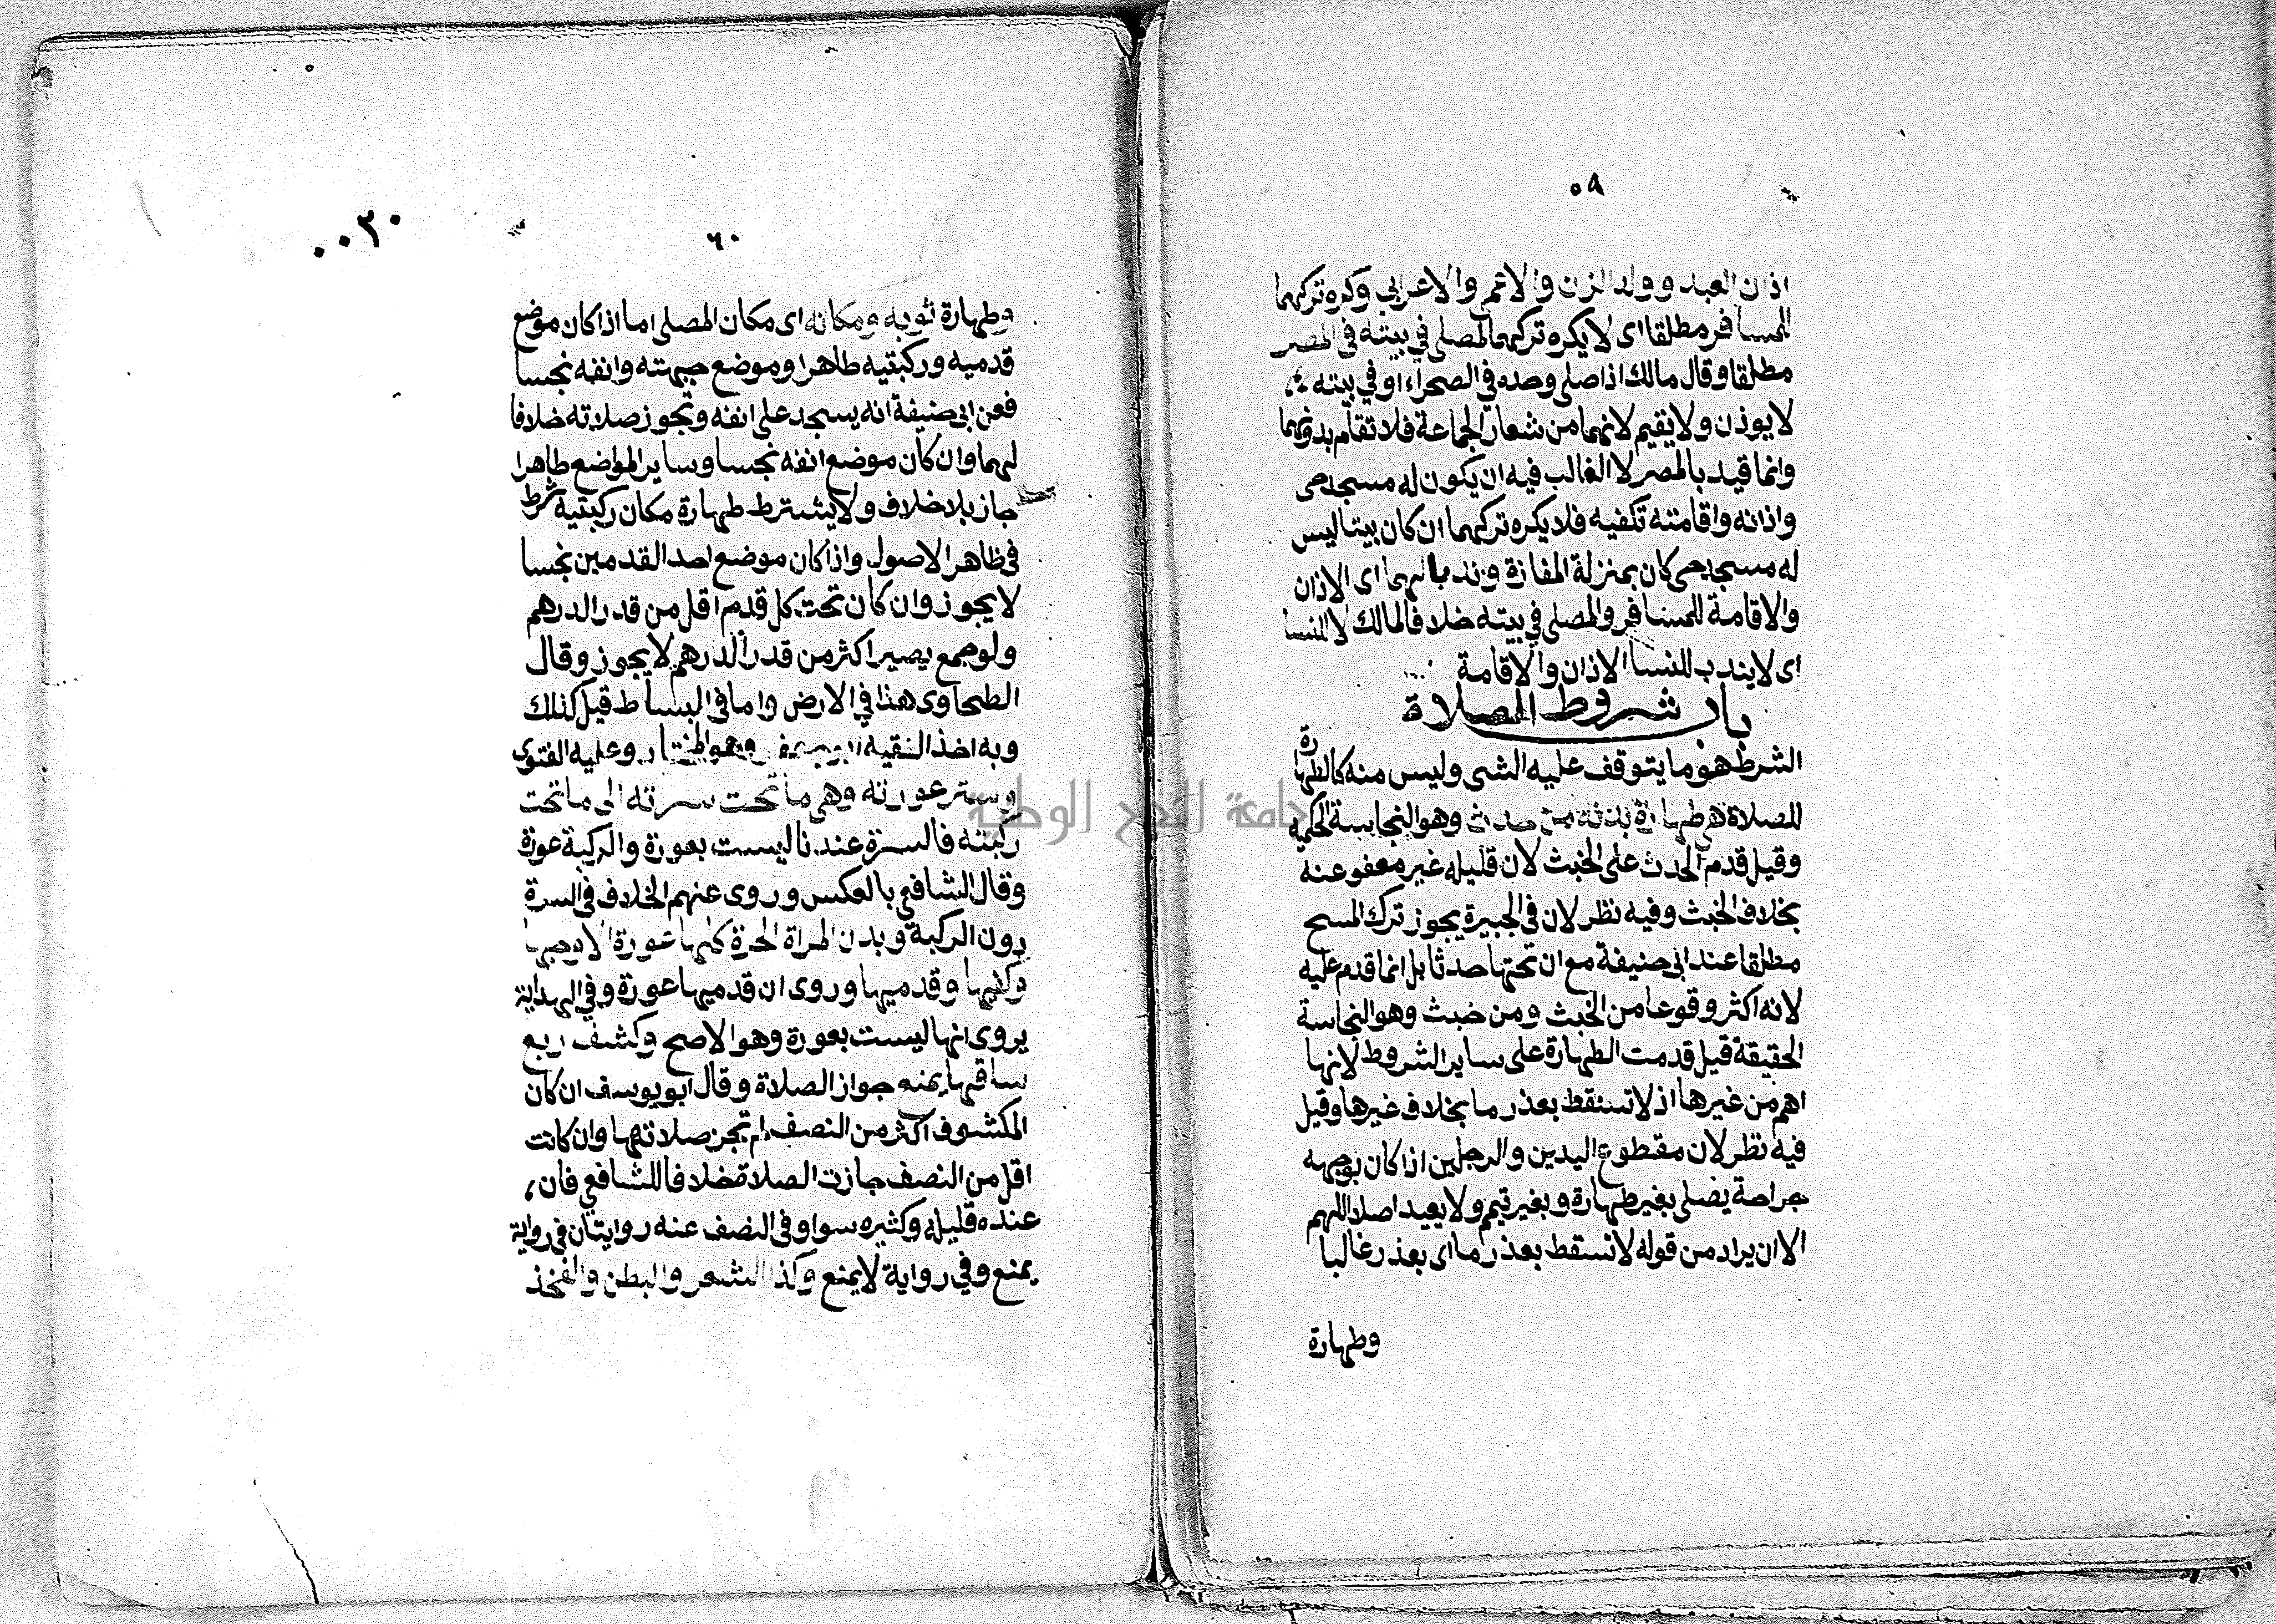 ٥٩
اذان العبد وولد الزنا والاعمى والاعرابي وكره تركهما
للمسافر مطلقا اى لا يكره تركهما لمصلى في بيته في المصر
مطلقا وقال مالك اذا صلى وحده في الصحراء او في بيته
لا يوذن ولا يقيم لانهما من شعار الجماعة فلا تقام بدونهما
وانما قيد بالمصر لا الغالب فيه ان يكون له مسجد حى
واذانه واقامته تكفيه فلا يكره تركهما ان كان بيتا ليس
له مسجد حى كان بمنزلة المفازة وندبا لهما اى الاذان
والاقامة للمسافر والمصلى في بيته خلافا لمالك لا للنسا
اى لا يندب للنسا الاذان والاقامة
باب شروط الصلاة
الشرط هو ما يتوقف عليه الشى وليس منه كالطهارة
للصلاة هى طهارة بدنه من حدث وهو النجاسة الحكمية
وقيل قدم الحدث على الخبث لان قليله غير معفو عنه
بخلاف الخبث وفيه نظر لان في الجبيرة يجوز ترك المسح
مطلقا عند ابى حنيفة مع ان تحتها حدثا بل انما قدم عليه
لانه اكثر وقوعا من الخبث ومن خبث وهو النجاسة
الحقيقة قيل قدمت الطهارة على ساير الشروط لانها
اهم من غيرها اذ لا تسقط بعذر ما بخلاف غيرها وقيل
فيه نظر لان مقطوع اليدين والرجلين اذا كان بوجهه
جراحة يصلى بغير طهارة وبغير تيمم ولا يعيد اصلا اللهم
الا ان يراد من قوله لا تسقط بعذر ما اى بعذر غالبا
وطهارة
٦٠
٠٠٣٠
وطهارة ثوبه ومكانه اى مكان المصلى اما اذا كان موضع
قدميه وركبتيه طاهرا وموضع جبهته وانفه نجسا
فعن ابى حنيفة انه يسجد على انفه وتجوز صلاته خلافا
لهما وان كان موضع انفه نجسا وساير المواضع طاهرا
جاز بلا خلاف ولا يشترط طهارة مكان ركبتيه شرط
في ظاهر الاصول واذا كان موضع احد القدمين نجسا
لا يجوز وان كان تحت كل قدم اقل من قدر الدرهم
ولو جمع يصير اكثر من قدر الدرهم لا يجوز وقال
الطحاوى هذا في الارض واما في البساط قيل كذلك
وبه اخذ الفقيه ابو جعفر وهو المختار وعليه الفتوى
وستر عورته وهى ما تحت سرته الى ما تحت
ركبته فالسرة عندنا ليست بعورة والركبة عورة
وقال الشافعي بالعكس وروى عنهم الخلاف في السرة
دون الركبة وبدن المراة الحرة كلها عورة الا وجهها
وكفيها وقدميها وروى ان قدميها عورة وفي الهداية
يروى انها ليست بعورة وهو الاصح وكشف ربع
ساقها يمنع جواز الصلاة وقال ابو يوسف ان كان
المكشوف اكثر من النصف لم تجز صلاتها وان كانت
اقل من النصف جازت الصلاة خلافا للشافعي فان
عنده قليله وكثيره سوا وفي النصف عنه روايتان في رواية
يمنع وفي رواية لا يمنع وكذا الشعر والبطن والفخذ
جامعة النجاح الوطنية